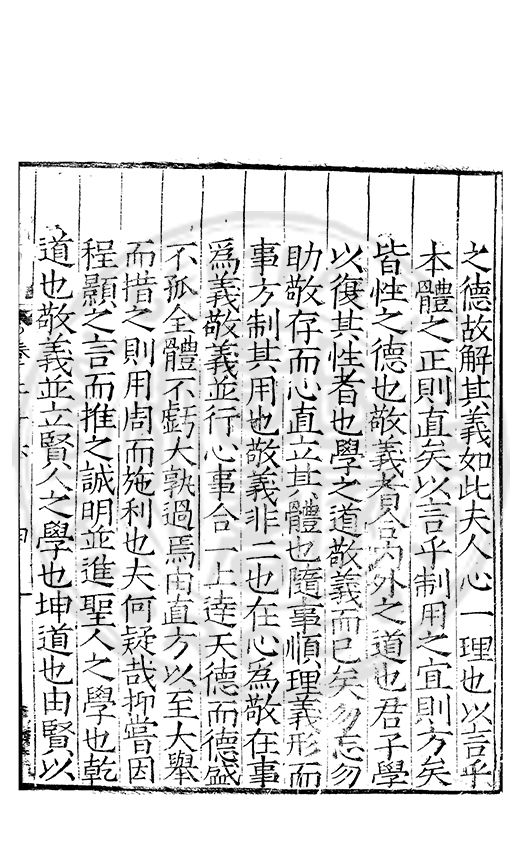 之德故解其義如此夫人心一理也以言乎
本體之正則直矣以言乎制用之宜則方矣
皆性之德也敬義者合內外之道也君子學
以復其性者也學之道敬義而已矣勿忘勿
助敬存而心直立其體也隨事順理義形而
事方制其用也敬義非二也在心為敬在事
為義敬義並行心事合一上達天德而德盛
不孤全體不虧大孰過焉由直方以至大舉
而措之則用周而施利也夫何疑哉抑嘗因
程顥之言而推之誠明並進聖人之學也乾
道也敬義並立賢人之學也坤道也由賢以